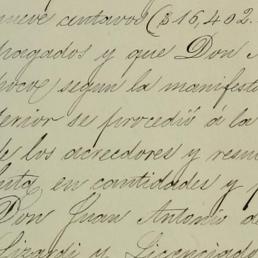 nueve centavos ($16,402.
pagados y que Don
poco) segun la manifest
terior se procedió á la
de los acreedores y resu
luta en cantidades y p
Don Juan Antonio de
Girardi y Licenciado